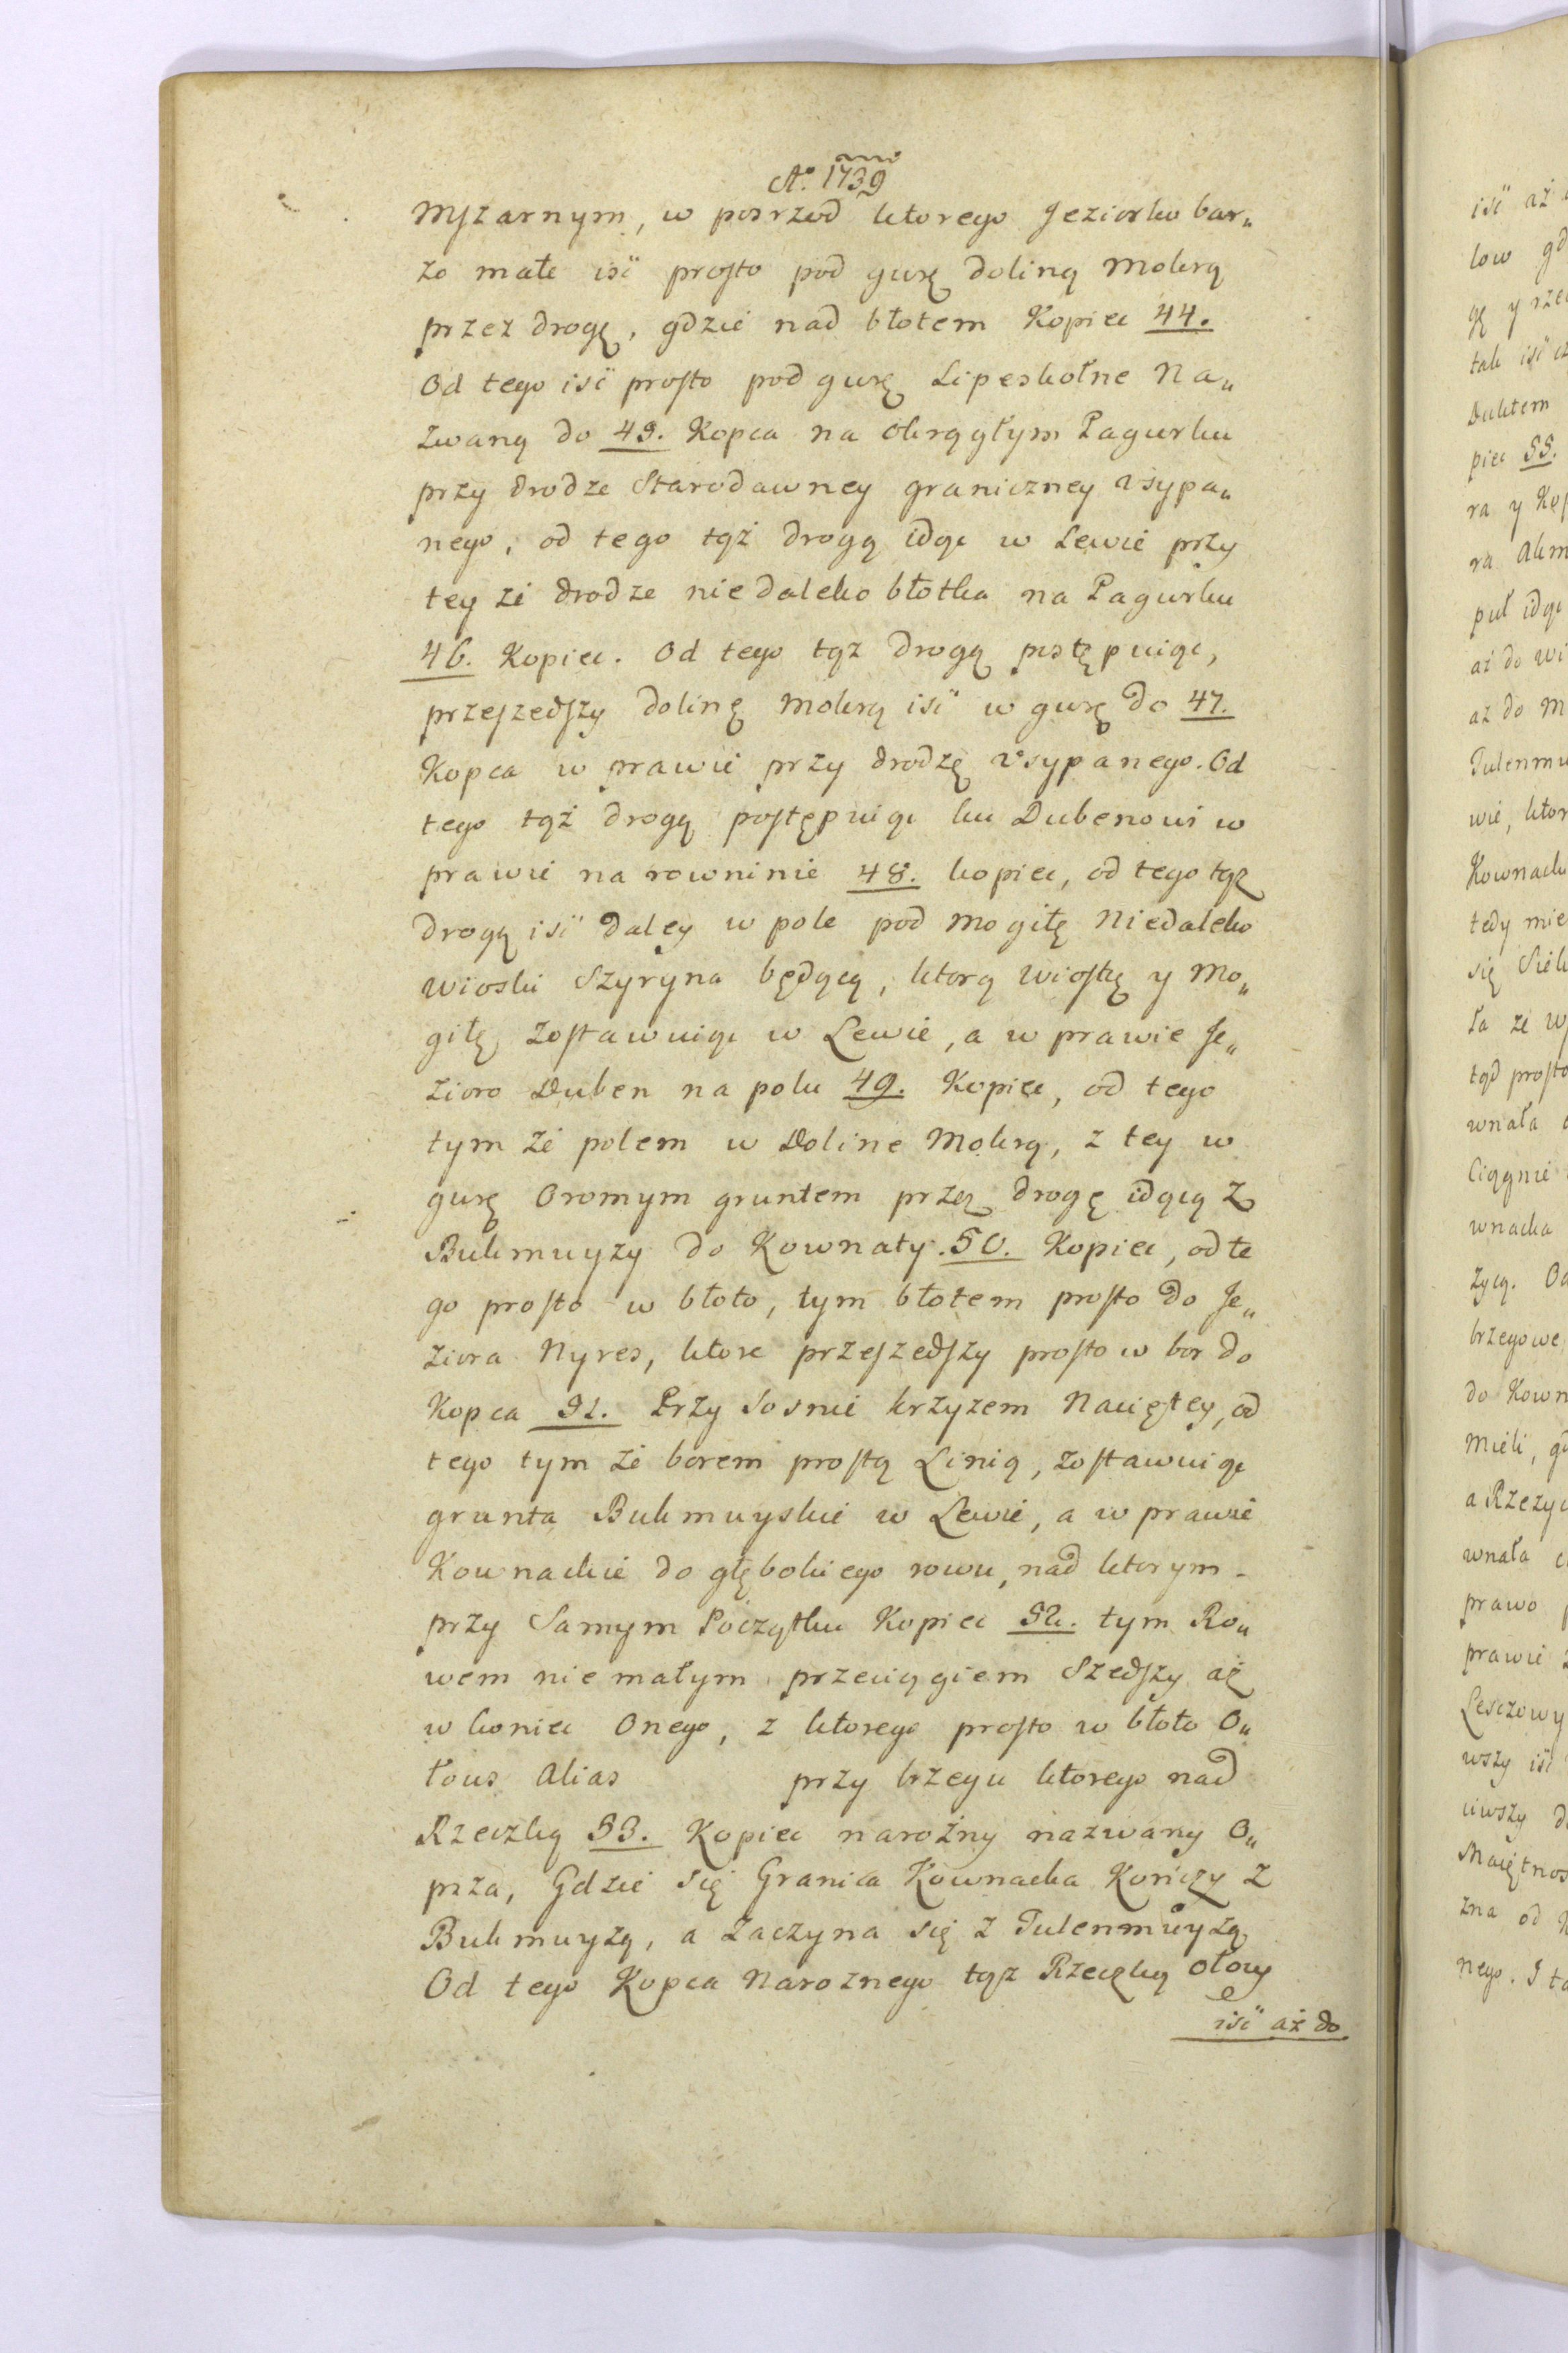 Aº. 1739
Mszarnym, w posrzod ktorego Jeziorko bar„
zo małe isć prosto pod gurę doliną mokrą
przez drogę, gdzie nad błotem Kopiec 44.
Od tego isć prosto pod gurę Lipeskołne Na„
zwaną do 45. Kopca na okrągłym Pagurku
przy drodze Starodawney graniczney vsypa„
nego, od tego tąż drogą idąc w Lewie przy
tey że drodze niedaleko błotka na Pagurku
46. Kopiec. Od tego tąz drogą pstępuiąc,
przeszedszy dolinę mokrą isć w gurę do 47.
Kopca w prawie przy drodzę vsypanego. Od
tego tąż drogą postępuiąc ku Dubenowi w
prawie na rowninie 48. kopiec, od tego tąz
drogą isć daley w pole pod mogiłę Niedaleko
wioski Szyryna będącą, ktorą wioskę y Mo„
giłę zostawuiąc w Lewie, a w prawie Je„
zioro Duben na polu 49. Kopiec, od tego
tym że polem w Doline Mokrą, z tey w
gurę Oromym gruntem przez drogę idącą z
Bukmuyzy do Kownaty. 50. Kopiec, od te
go prosto w błoto, tym błotem prosto do Je„
ziora Nyres, ktore przeszedszy prosto w bor do
Kopca 51. Przy Sosnie krzyzem Naciętey, od
tego tym że borem prostą Linią, zostawuiąc
grunta Bukmuyskie w Lewie, a w prawie
Kownackie do głębokiego rowu, nad ktorym
przy Samym Początku Kopiec 52. tym Ro„
wem nie małym przeciągiem Szedszy aż
w koniec Onego, z ktorego prosto w błoto O„
łous Alias przy brzegu ktorego nad
Rzeczką 53. Kopiec narożny nazwany O„
prza, Gdzie się Granica Kownacka Kończy z
Bukmuyzą, a Zaczyna się z Tulenmuyzą
Od tego Kopca Naroznego tąz Rzeczką Ołowę
isć aż do
isć aż
low
gę y rze
tak isć
Duktem
piec 55.
ra y
ra
puł idąc
aż do
aż do M
Tulenmu
wie, ktor
Kownack
tedy mie
się
ła że
tąd prosto
wnała
Ciągnie
wnacka
życą.
brzegowe
do Kown
Mieli,
a Rzezy
wnała
prawo
prawie
Leszowy
wszy isć
Maiętnos
zna od
nego.